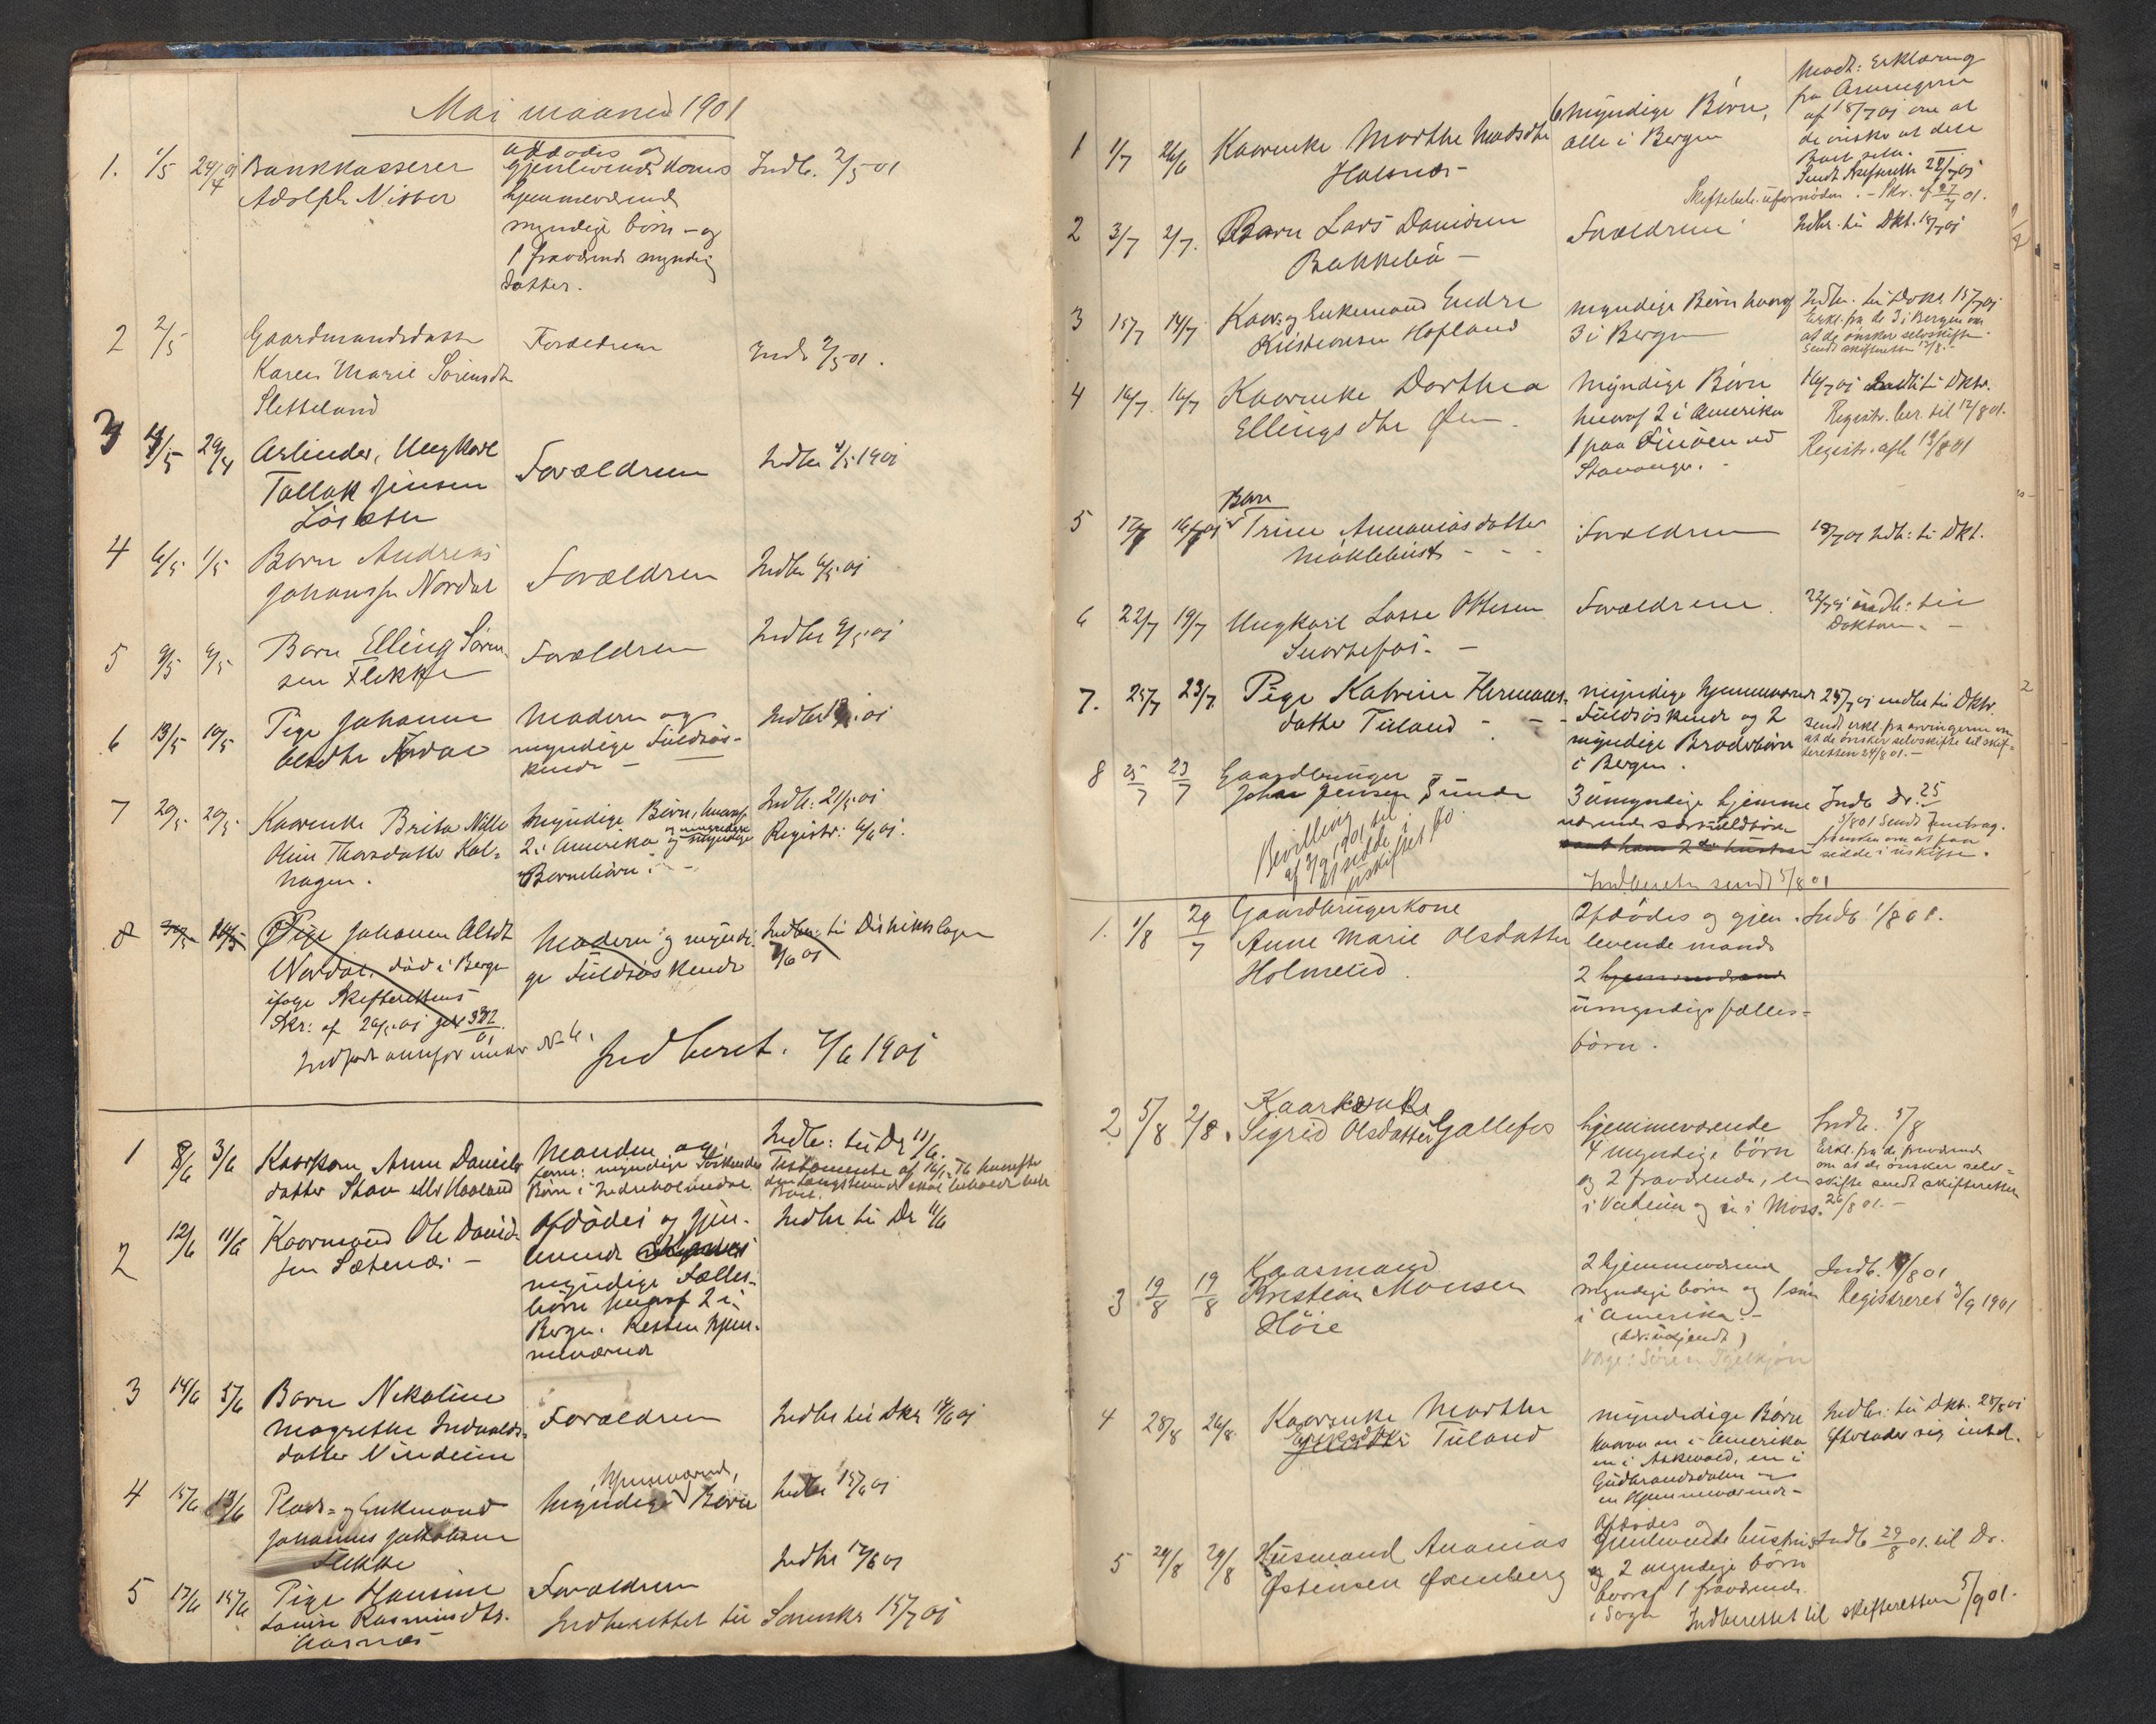 Mai maaned 1901
1. 1/5 24/4 01 Bankkasserer
Adolph Nisser
afdødes og
Gjenlevende Kones
hjemmeværende
myndige børn - og
1 fraværende myndig
datter.
Indb. 2/5 01
2 2/5 Gaardmandsdatter
Karen Marie Sørensdtr
Sletteland
Forældrene
Indb. 2/5 01.
3 4/5 29/4 Arbeider, Ungkarl
Tollak Jensen
Forældrene
Indbr 4/5 1901
4 6/5 1/5 Barn Andreas
Johanssen Nordal
Forældrene
Indbr 6/5 01
5 9/5 6/5 Barn Elling Søren-
sen Flekke
Forældren
Indbr 9/5 01
6 13/5 10/5 Pige Johanne
Alsdtr Nordal
Moderen og
myndige Fuldsøs-
kende -
7 20/5 20/5 Kaarenke Brita Nille
Oline Thorsdatter Kol-
hagen.
Myndige Børn, hvoraf
2 i Amerika og umyndige
Børnebørn.
Indb: 21/5 01
Registr: 6/6 01.
8 Pige Johanne Alsdt
Nordal. død i Bergen
ifølge Skifterettens
Skr: af 20/5 01
Indført ovenfor under No 6.
Moderen og myndi-
ge Fuldsøskende
Indber: til Distriktslægen
7/6 01
Indberet. 7/6 1901
1 8/6 3/6 Kaarkone Anne Daniels
datter
Manden og
Børn i Indreholmedal
Indb: til Dr 11/6.
Testamente af
2 12/6 11/6 Kaarmand Ole David-
sen Sætenes -
Afdødes og gjen-
levende
myndige Fælles-
børn hvoraf 2 i
Bergen. Resten hjem-
meværende
Indbr til Dr 11/6
3 14/6 5/6 Barn Nikoline
Magrethe Indvalds-
datter Vindeim
Forældren
Indbr til Dkr 14/6 01
4 15/6 13/6 Plads- og Enkemand
Johannes Jakobsen
Flekke
hjemmeværende,
Myndige Børn
Indbr 15/6 01
5 17/6 15/6 Pige Hansine
Louise Rasmusdtr.
Aasnæs
Forældren
Indbr 17/6 01
Indberettet til Sorenskr 15/7 01
1 1/7 26/6 Kaarenke Marthe Madsdtr
Halsnæs -
6 myndige Børn,
alle i Bergen
Modt: Erklæring
fra Arvingerne
af 18/7 01 om at
de ønske at dele
Boet selv. -
Sendt Skifteretten 22/7 01
Skiftebeh. ufornøden. - Skr. af 27/7 01.
2 3/7 2/7. Barn Lars Danielsen
Bakkebø -
Forældrene
Indbr. til Dkt. 18/7 01
3 15/7 14/7 Kaar- og Enkemand Endre
Kristiansen Hopland
myndige Børn hvoraf
3 i Bergen
Indbr. til Doktr. 15/7 01
Erkl. fra de 3 i Bergen om
at de ønsker selvskifte
sendt skifteretten 12/8. -
4 16/7 16/7 Kaarenke Dorthea
Ellings dtr Øen.
Myndige Børn
hvoraf 2 i Amerika
1 paa Finøen ved
Stavanger.
16/7 01 Indb. til Dktr.
Registr. ber. til 12/8 01.
Registr. afh 13/8 01
5 17/7 16/7 01 Barn
Trine Annaniasdatter
Møklebust - - -
Forældrene
18/7 01 Indb: til Dkt.
6 22/7 19/7 Ungkarl Lasse Ottesen
Svortefos. -
Forældrene.
22/7 01 indb: til
Doktoren. -
7. 25/7 23/7 Pige Katrine Hermans-
datter Tuland - -
myndige hjemmeværende
Fuldsøskende og 2
myndige Broderbørn
i Bergen.
25/7 01 indbr til Dktr.
Sendt erkl. fra arvingerne om
at de ønsker selvskifte til skif-
teretten 24/8 01. -
8 25/7 23/7 Gaardbruger
Johan Jensen Sunde
Bevilling
af 3/9 1901 til
at sidde i
uskiftet bo.
3 umyndige hjemme
værende særkuldbørn
samt hans 2den hustru
Indb Dr. 25
5/8 01 Sendt
sidde i uskifte.
Indberetn sendt 5/8 01
1. 1/8 29/7 Gaardbrugerkone
Anne Marie Olsdatter
Holmelid.
Afdødes og gjen-
levende mands
2 hjemmeværende
umyndige fælles-
børn.
Indb. 1/8 01.
2 5/8 2/8. Kaarkone
Sigrid Olsdatter Gallefos
hjemmeværende
4 myndige børn
og 2 fraværende, en
i Vadeim og en i Moss.
Indb. 5/8
Erkl. fra de fraværende
om at de ønsker selv-
skifte sendt skifteretten
26/8 01. -
3 19/8 19/8 Kaarmand
Kristian Monsen
Høie
2 hjemmeværende
myndige børn og 1 søn
i Amerika. -
(Adr. ukjendt)
Indb. 19/8 01
Registreret 3/9 1901
4 28/8 26/8 Kaarenke Marthe
Eriksdtr Tuland
myndidige Børn
hvoraf en i Amerika
en i Askevold, en i
Gudbrandsdalen og
en hjemmeværende -
Indbr: til Dkt. 28/8 01
Efterlader sig intet.
5 29/8 29/8 Husmand Ananias
Østensen Øxenberg
Afdødes og
Gjenlevende hustrues
og 2 myndige børn
hvoraf 1 fraværende
i Sogn
Indb 29/8 01. til Dr.
Indberettet til skifteretten 5/9 01.